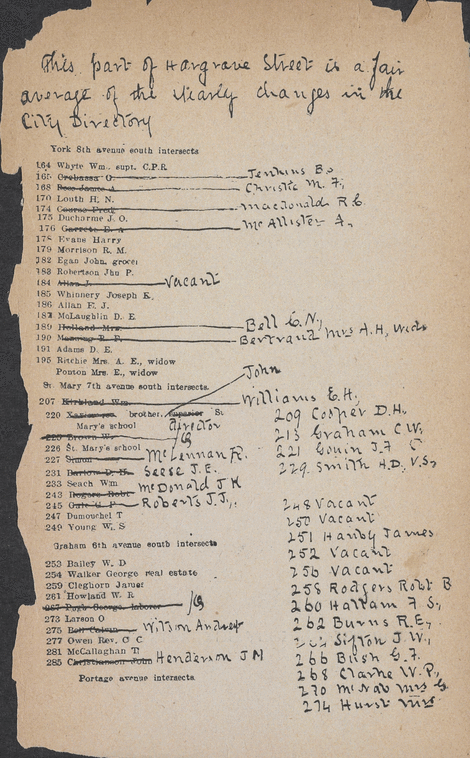 This part of Hargrave Street is a fair
average of the Yearly changes in the
City Directory
York 8th avenue south intersects
164 Whyte Wm. supt. C.P.R.
165 Jenkins B.
168 Rose James A Christie M. F,
170 Louth H. N.
174 Course Fred. Macdonald R. C.
175 Ducharme J. O.
176 McAllister A,
178 Evans Harry
179 Morrison R. M.
182 Egan John, grocer
183 Robertson Jhn P.
184 Allan J. Vacant
185 Whinnery Joseph E.
186 Allan E. J.
187 McLaughlin D. E.
189 Holland Mrs. Bell C. N,
190 Bertrand Mrs A. H, Wido
191 Adams D. E.
195 Ritchie Mrs. A. E., widow
Ponton Mrs. E., widow
John
St. Mary 7th avenue south intersects.
207 Kirkland Wm Williams E. H,
220 brother, superior St
Mary's school director
209 Cooper D. H,
213 Graham C W,
225 Brown W
226 St. Mary's school
221 Gouin J. F
227 McLennan R.
229 Smith H. D, V.S,
231 Barlow D. N. Seese J. E.
233 Seach Wm
243 McDonald J K
245 Roberts J. J,
247 Dumouchel T
249 Young W. S
248 Vacant
250 Vacant
251 Handy James
252 Vacant
256 Vacant
258 Rodgers Robt B
260 Hallam F S,
262 Burns R. E,
Sifton J. W,
266 Bush G. F.
268 Clarke W. P,
270 McNab Mrs G
274 Hurst Mrs
Graham 6th avenue south intersects
253 Bailey W. D
254 Walker George real estate
259 Cleghorn James
261 Howland W. R
267 Pugh George, laborer
273 Larson O
275 Bell Calvin Wilson Andrew
277 Owen Rev. C C
281 McCallaghan T
285 Christianson John Henderson J M
Portage avenue intersects